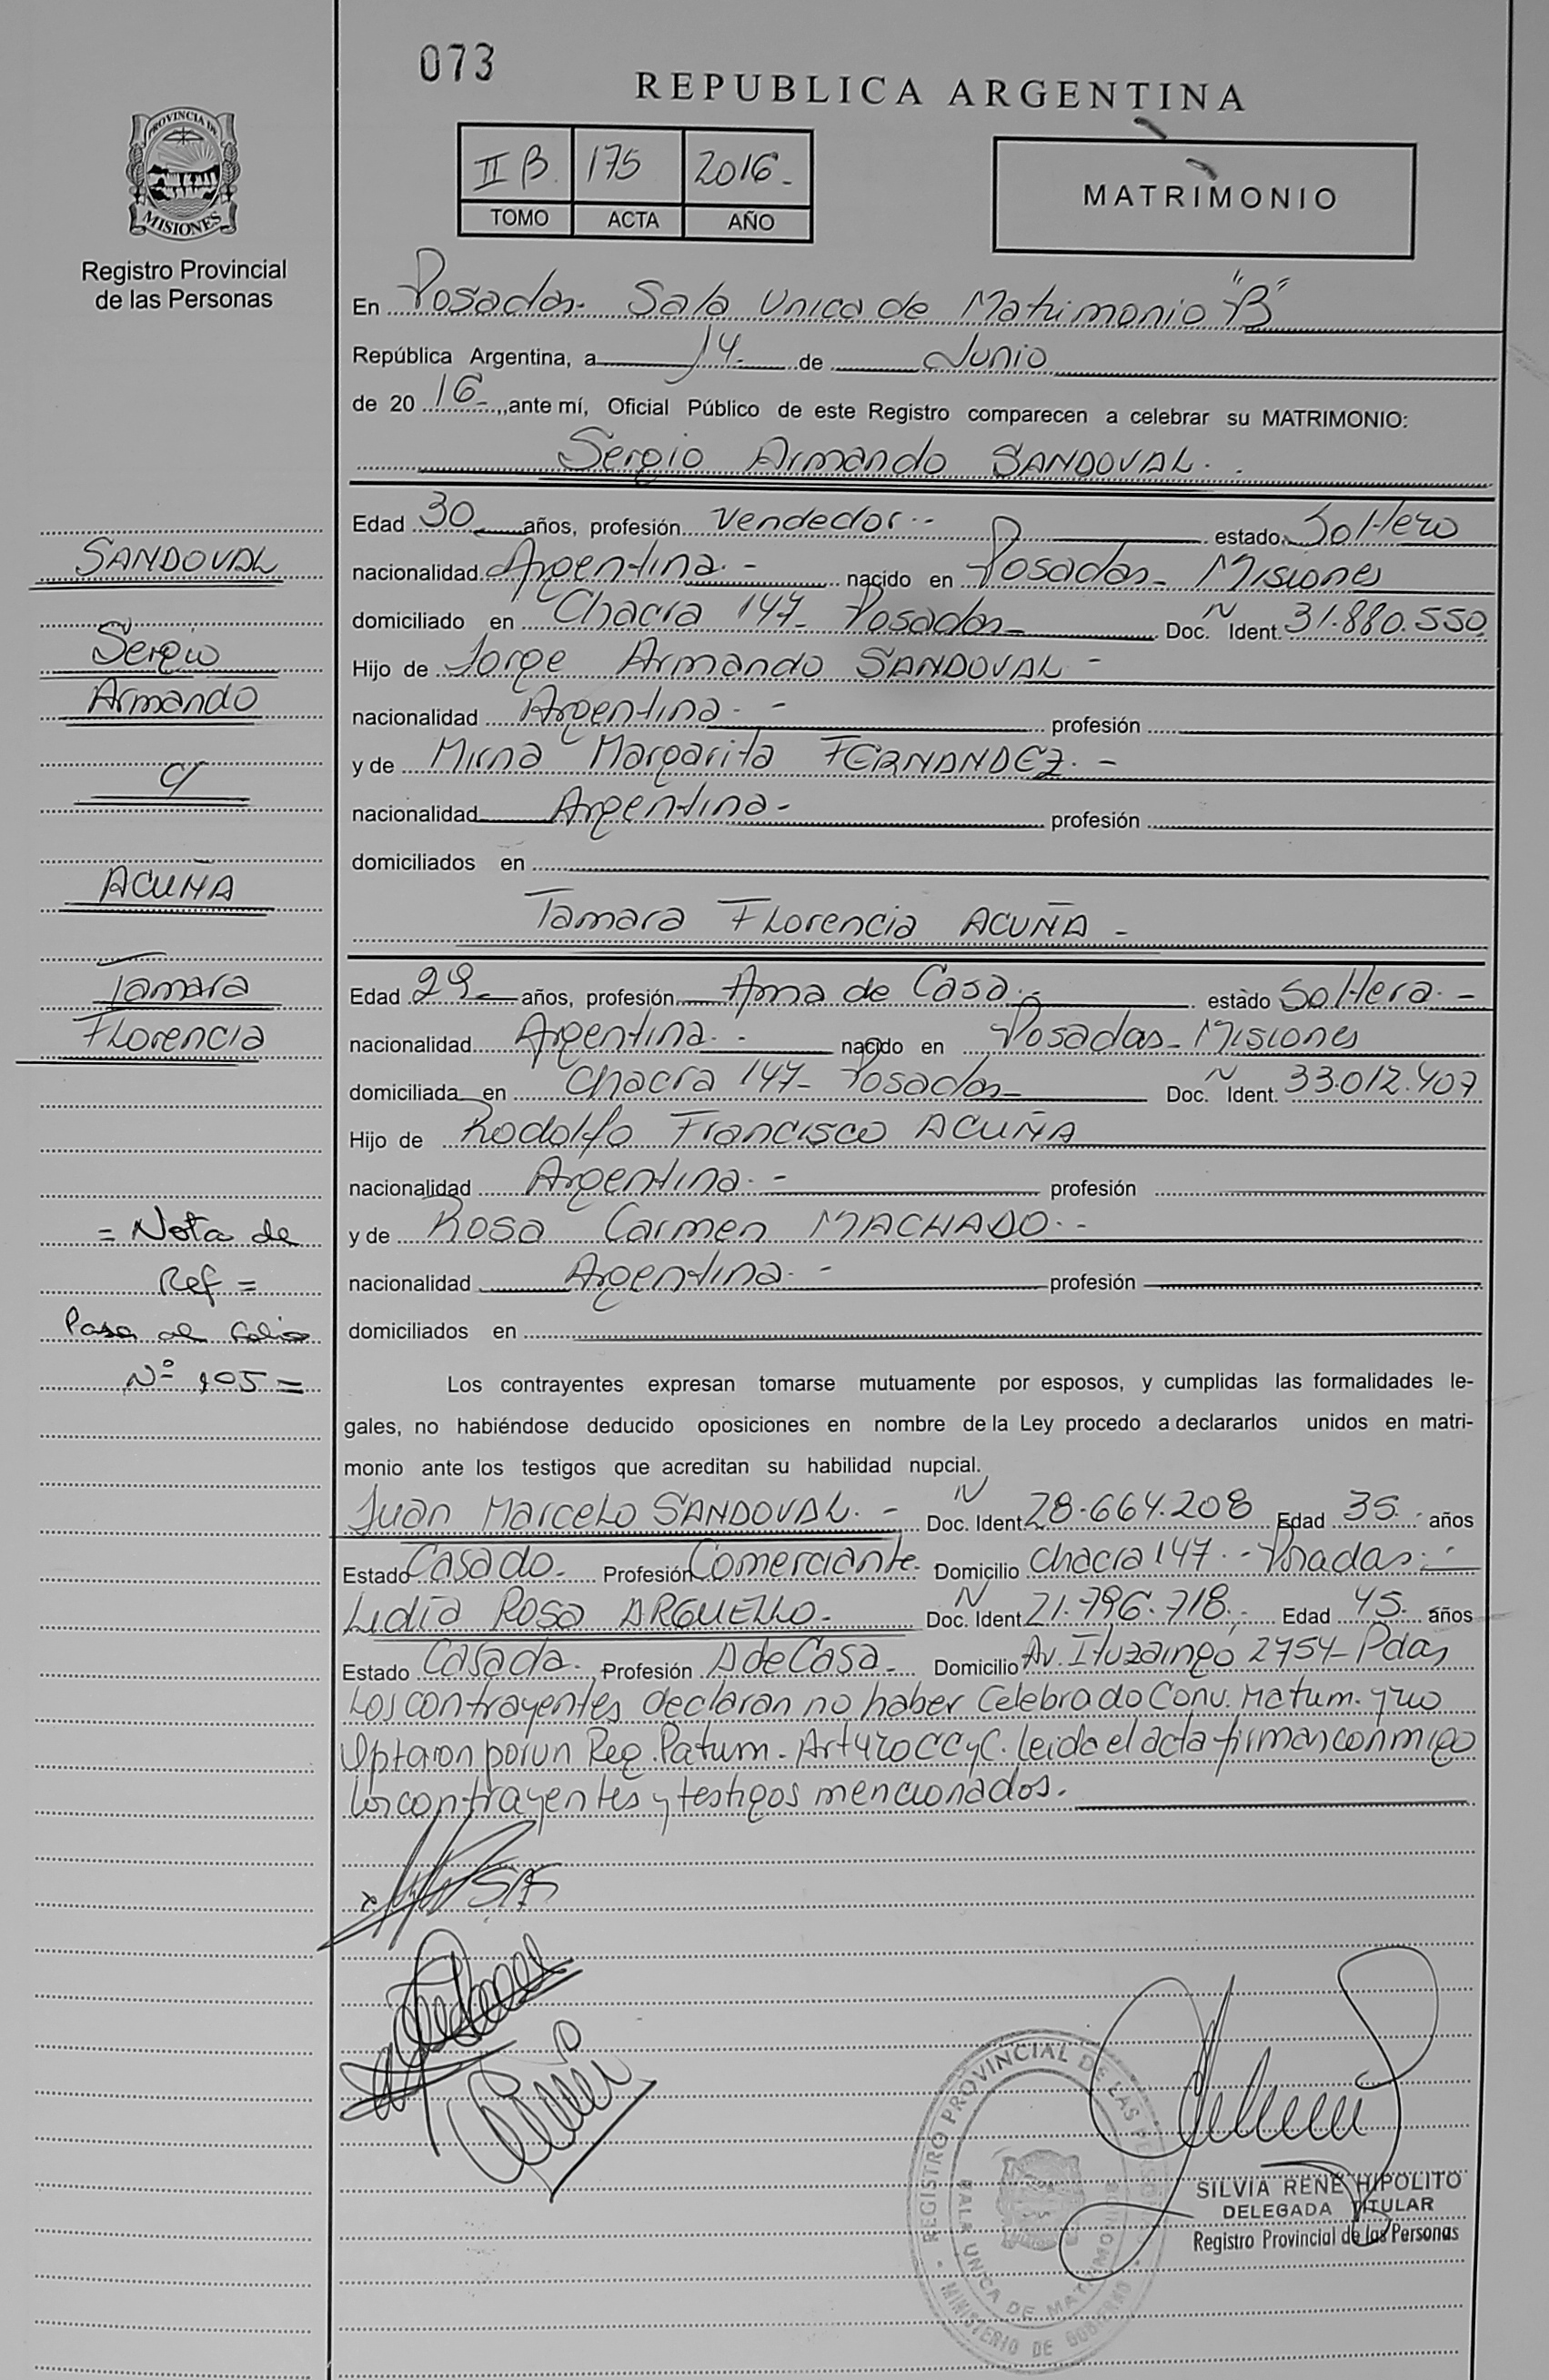 073
REPUBLICA ARGENTINA
PROVINCIA DE
MISIONES
Registro Provincial
de las Personas
II B. 175 2016-
TOMO ACTA AÑO
MATRIMONIO
En Posadas- Sala Unica de Matrimonio "B"
República Argentina, a 14- de Junio
de 20 16- ,,ante mí, Oficial Público de este Registro comparecen a celebrar su MATRIMONIO:
Sergio Armando SANDOVAL.-
Edad 30 años, profesión Vendedor.- estado Soltero
nacionalidad Argentina.- nacido en Posadas- Misiones
domiciliado en Chacra 147- Posadas- Doc. N Ident. 31.880.550
Hijo de Jorge Armando SANDOVAL-
nacionalidad Argentina.- profesión
y de Mirna Margarita FERNANDEZ.-
nacionalidad Argentina- profesión
domiciliados en
Tamara Florencia ACUÑA-
Edad 29- años, profesión Ama de Casa.- estado Soltera.-
nacionalidad Argentina.- nacido en Posadas- Misiones
domiciliada en Chacra 147- Posadas- Doc. N Ident. 33.012.407
Hijo de Rodolfo Francisco ACUÑA
nacionalidad Argentina.- profesión
y de Rosa Carmen MACHADO.-
nacionalidad Argentina.- profesión
domiciliados en
SANDOVAL
Sergio
Armando
C/
ACUÑA
Tamara
Florencia
= Nota de
Ref =
Pasa al folio
Nº 105 =
Los contrayentes expresan tomarse mutuamente por esposos, y cumplidas las formalidades le-
gales, no habiéndose deducido oposiciones en nombre de la Ley procedo a declararlos unidos en matri-
monio ante los testigos que acreditan su habilidad nupcial.
Juan Marcelo SANDOVAL.- Doc. N Ident. 28.664.208 Edad 35. años
Estado Casado- Profesión Comerciante- Domicilio Chacra 147.- Posadas.-
Lidia Rosa ARGUELLO- Doc. N Ident. 21.796.718.- Edad 45. años
Estado Casada- Profesión A de Casa- Domicilio Av. Ituzaingó 2754- Pdas
Los contrayentes declaran no haber Celebrado Conv. Matrim. y no
Optaron por un Reg. Patrim- Art 420 CCyC. leida el acta firman conmigo
los contrayentes y testigos mencionados.
REGISTRO PROVINCIAL DE LAS
SALA UNICA DE MATRIMONIO
MINISTERIO DE GOBIERNO
SILVIA RENE HIPOLITO
DELEGADA TITULAR
Registro Provincial de las Personas